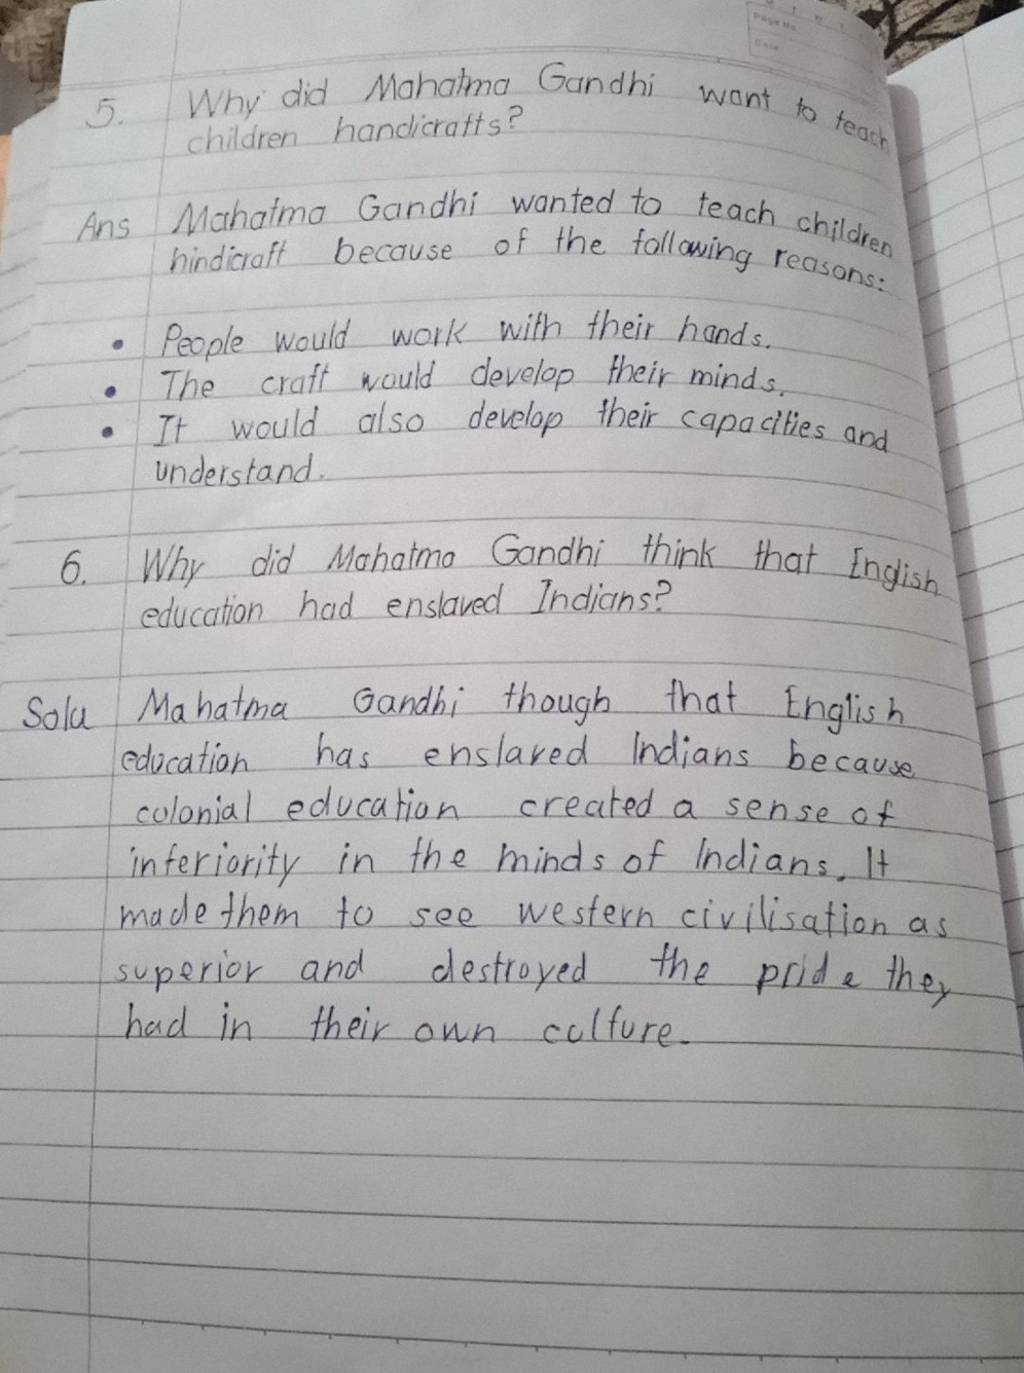 Page No
Date
5. Why did Mahatma Gandhi want to teach
children handicrafts?
Ans Mahatma Gandhi wanted to teach children
hindicraft because of the following reasons:
• People would work with their hands.
• The craft would develop their minds.
• It would also develop their capacities and
understand.
6. Why did Mahatma Gandhi think that English
education had enslaved Indians?
Solu Mahatma Gandhi though that English
education has enslaved Indians because
colonial education created a sense of
inferiority in the minds of Indians. It
made them to see western civilisation as
superior and destroyed the pride they
had in their own culture.